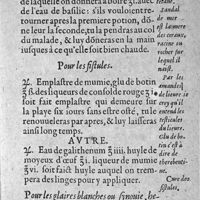 de laquelle on donnera a boire ʒi. auec
de l'eau de basilic: s'ils vouloient re-
tourner apres la premiere potion, dõ-
ne leur la seconde, ou la pendras au col
du malade, & luy dõneras en la main
iusques à ce qu'elle soit bien chaude.
Pour les fistules.
℞. Emplastre de mumie, glu de botin
ʒß. des liqueurs de consolde rouge ʒi.
soit fait emplastre qui demeure sur
la playe six iours sans estre osté, tu le
renouueleras par apres, & luy laisseras
ainsi long temps.
AVTRE.
℞. Eau de galithenum ʒiiii. huyle de
moyeux d'œuf ʒi. liqueur de mumie
ʒvi. soit faict huyle auquel on trem-
pera des linges pour y appliquer.
Pour les glaires blanches ou synouie, he-
de mer
est l'aumere
des ceraux,
racine ou
rocher sur
lequel il
naist.
Par les
amandes
de lieure
il entend les
testicules
du lieure.
Glu de
botin, c'est
à dire de
therebenti-
ne.
Cure des
fistules,